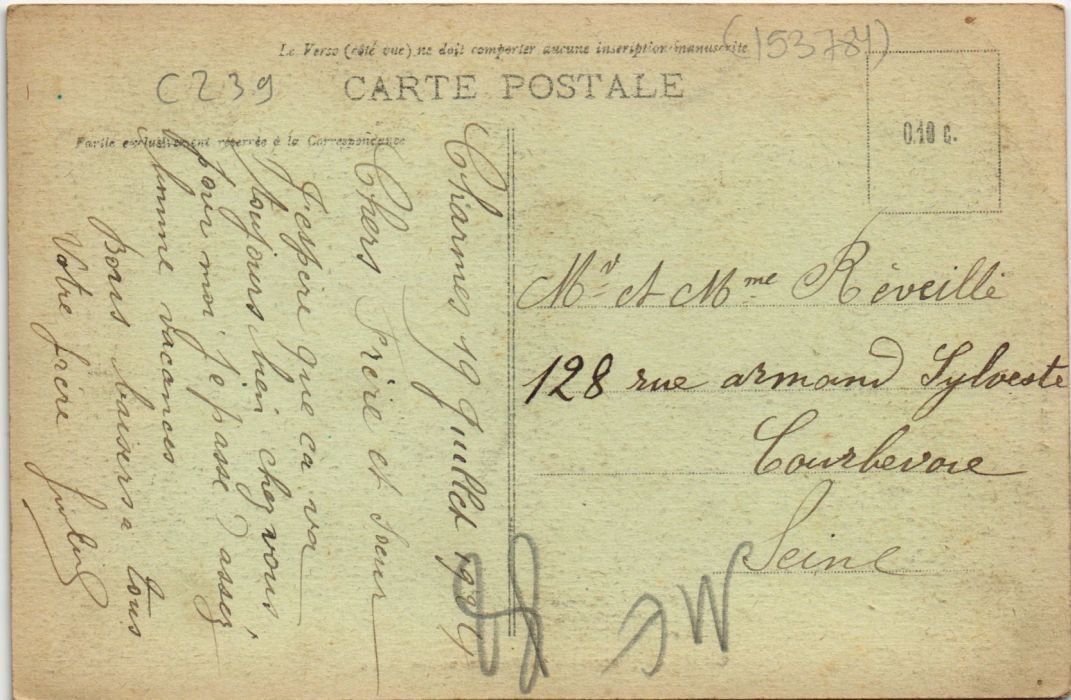 (153784)
Le Verso (côté vue) ne doit comporter aucune inscription manuscrite
C239
CARTE POSTALE
Partie exclusivement réservée à la Correspondance
0.10 c.
Charmes 19 Juillet 1924
Chers Frère et Soeur
J'espère que ca va
toujours bien chez vous,
pour moi je passe d'assez
bonne vacances
Bons baisers a tous
Votre frère
Mr et Mme Réveillé
128 rue armand Sylveste
Courbevoie
Seine